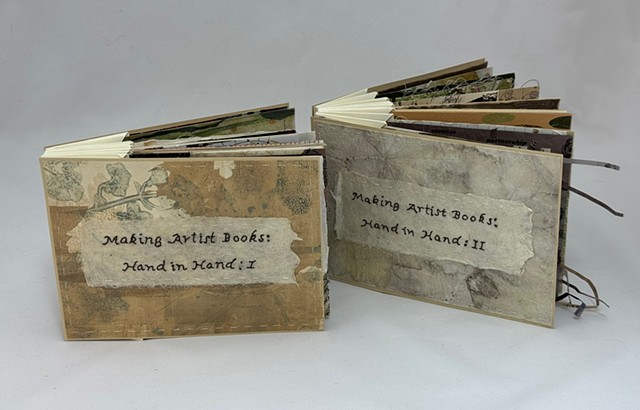 Making Artist Books:
Hand in Hand: I
Making Artist Books:
Hand in Hand: II